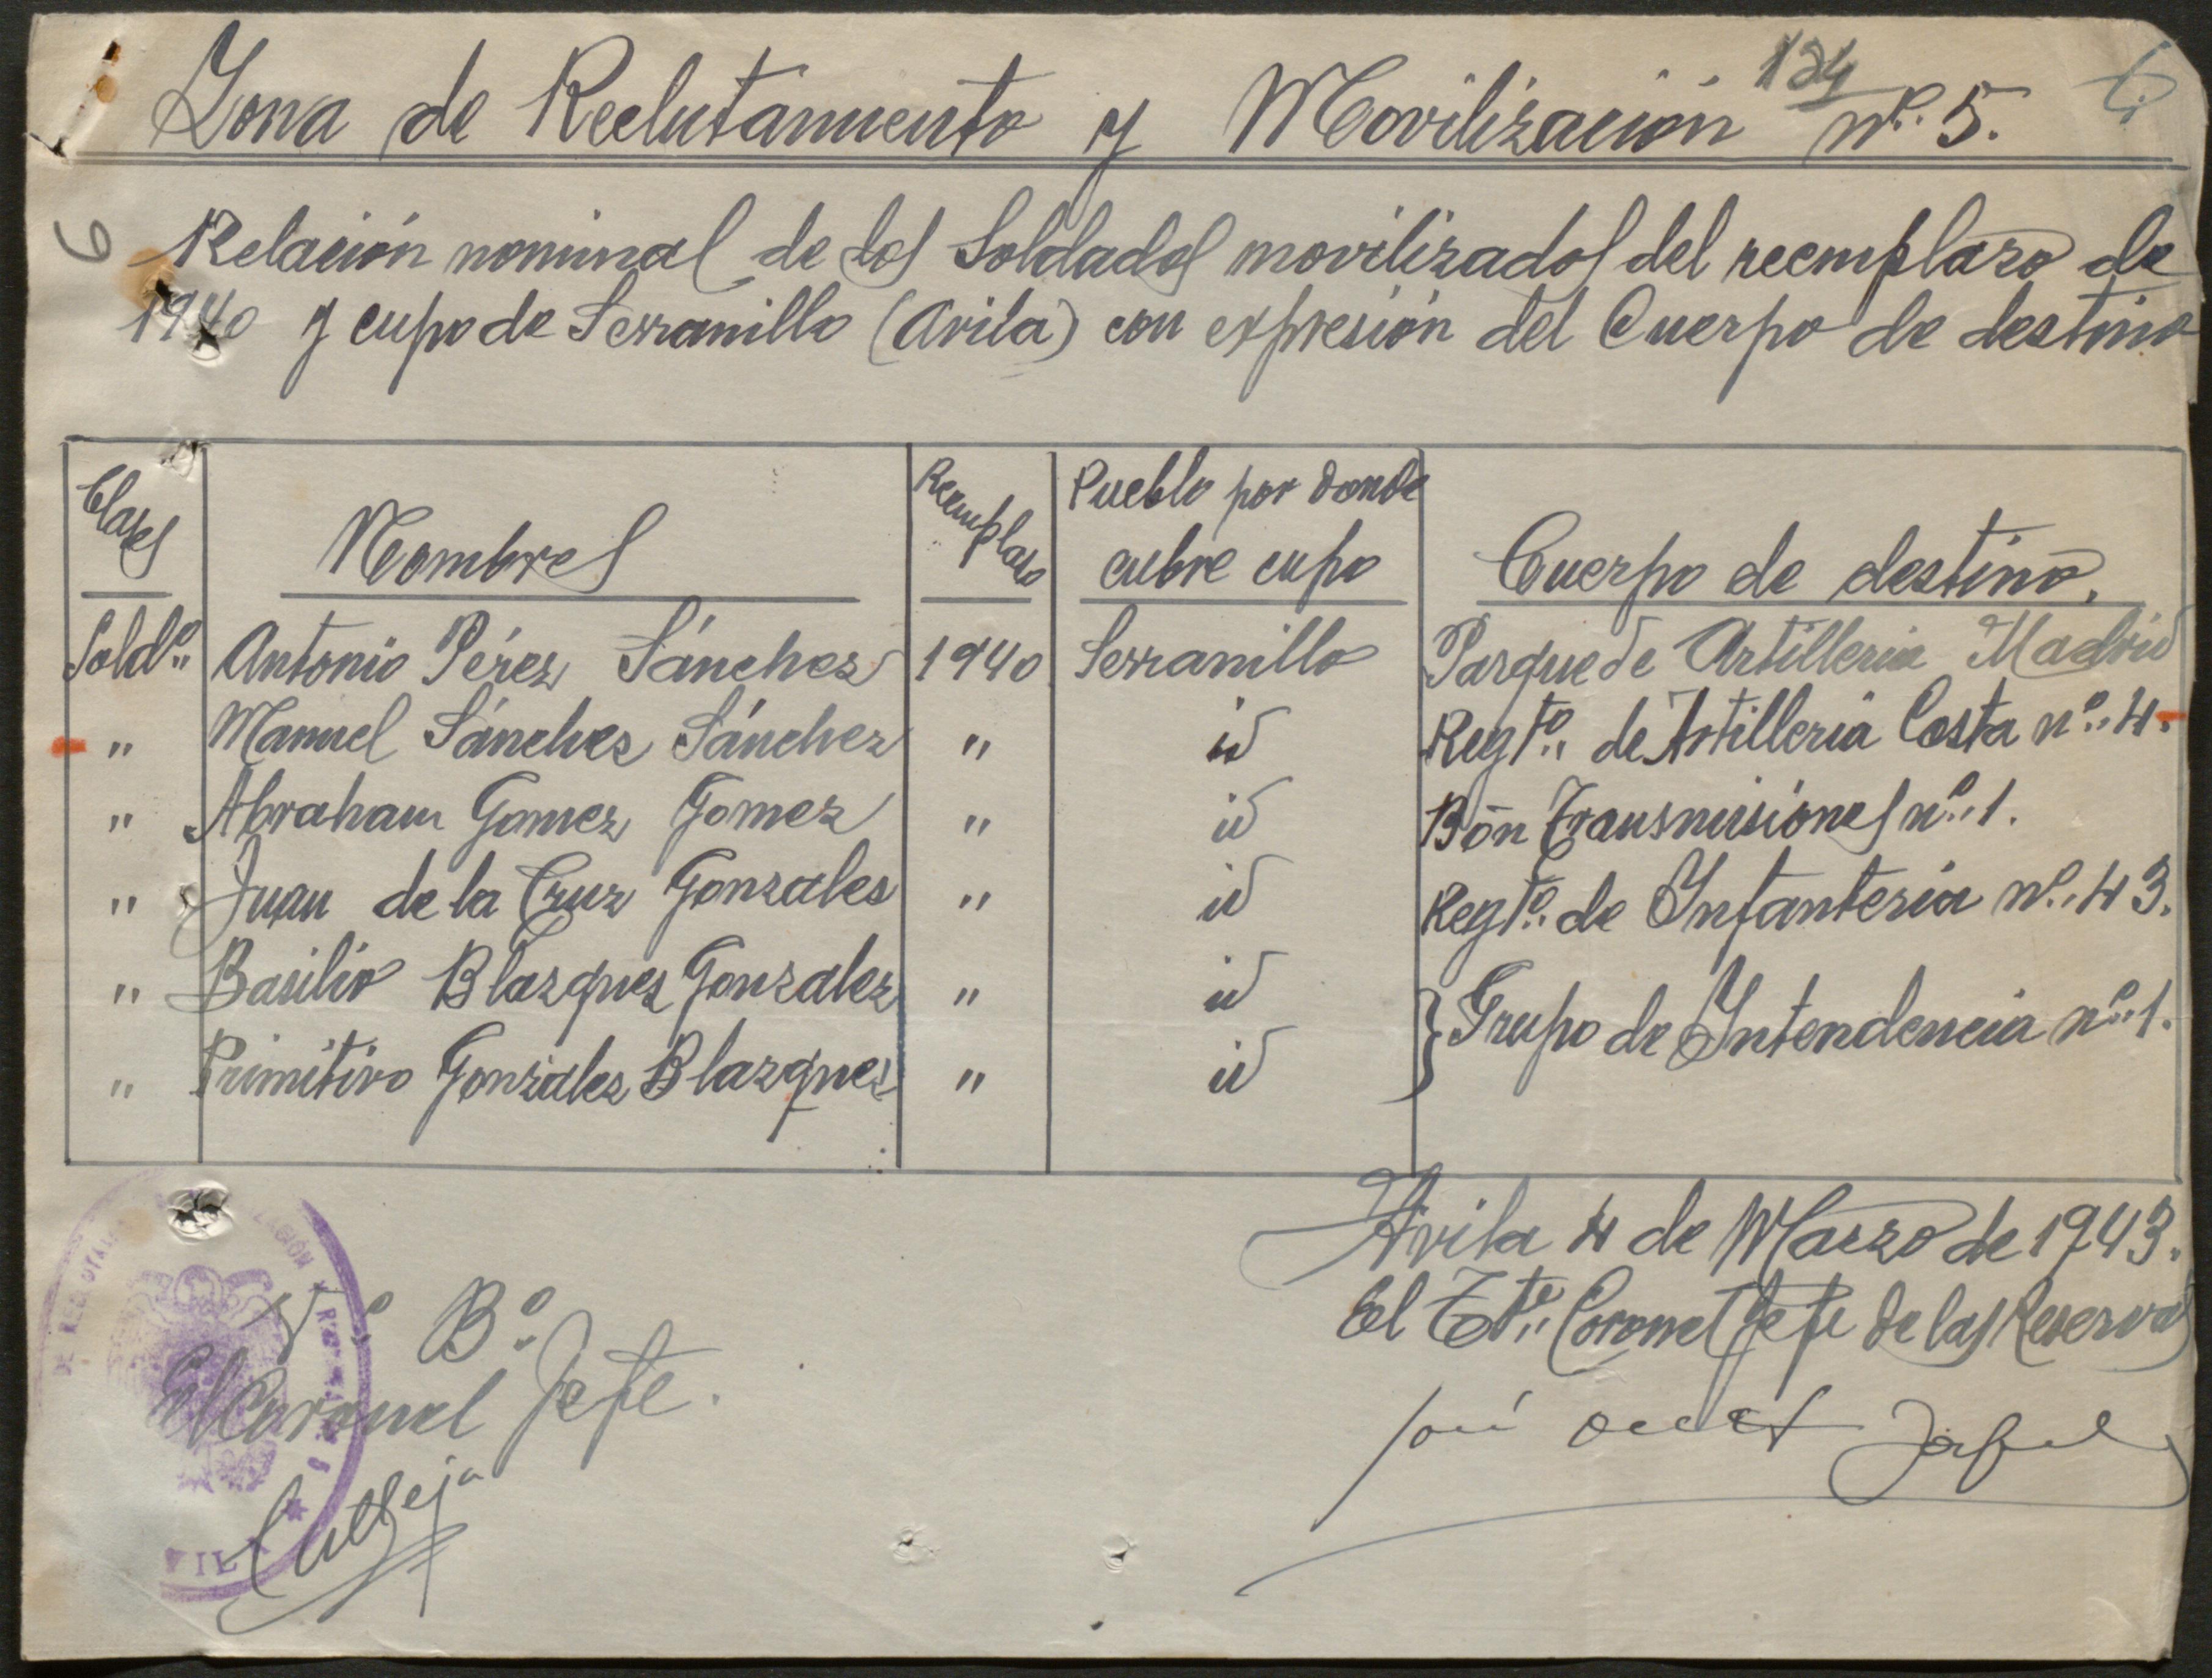 124
Zona de Reclutamiento y Movilización nº. 5.
6
Relación nominal de los Soldados movilizados del reemplazo de
1940 y cupo de Serranillo (Avila) con expresión del Cuerpo de destino
Clases Nombres Reemplazo Pueblo por donde cubre cupo Cuerpo de destino.
Soldº. Antonio Pérez Sánchez 1940 Serranillo Parque de Artilleria Madrid
" Manuel Sánchez Sánchez " id Regtº. de Artilleria Costa nº. 4.
" Abraham Gomez Gomez " id Bōn Transmisiones nº. 1.
" Juan de la Cruz Gonzales " id Regtº. de Infanteria nº. 43.
" Basilio Blazquez Gonzalez " id } Grupo de Intendencia nº. 1.
" Primitivo Gonzalez Blazquez " id
Avila 4 de Marzo de 1943.
El Tte. Coronel Jefe de las Reservas
Vº Bº
El Coronel Jefe.
Calleja